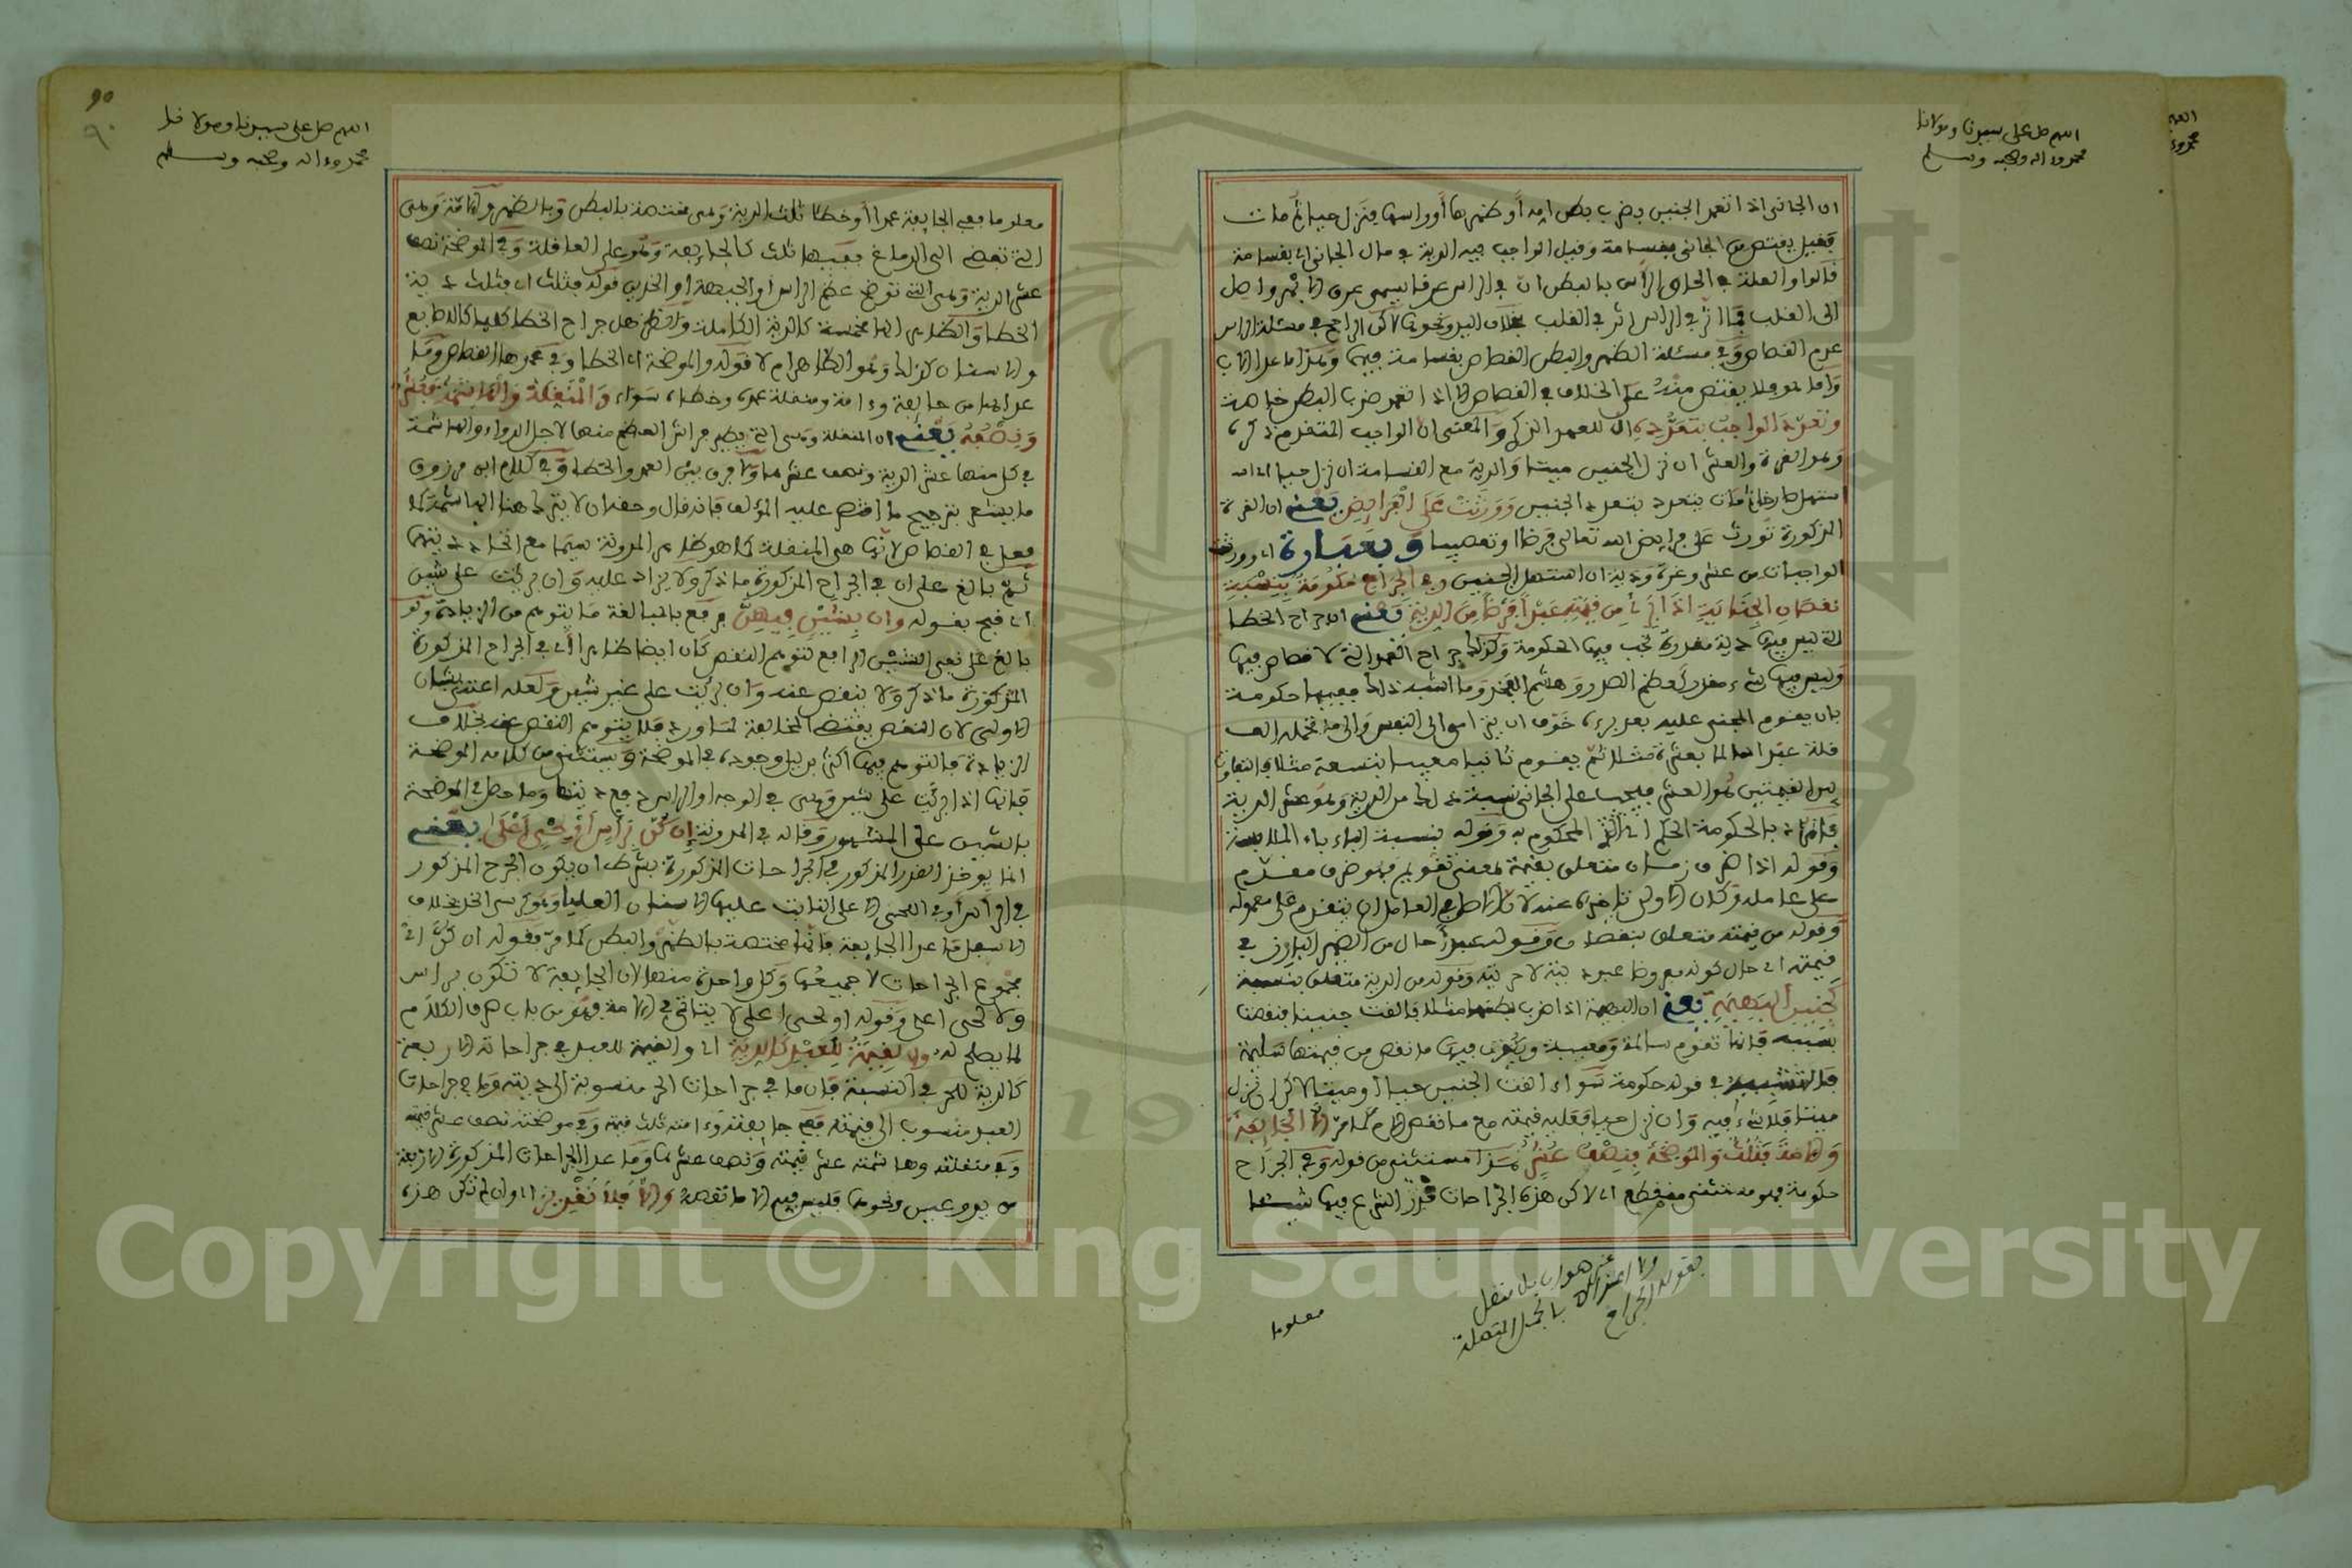 اللهم صل على سيدنا ومولانا
محمد وءاله وصحبه وسلم
ان الجانى اذا تعمد الجنين بضرب بطن امه أو ظهرها أو راسها فنزل حيا ثم مات
فقيل يقتص من الجانى بقسامة وقيل الواجب فيه الدية في مال الجانى اى بقسامة
قالوا والعلة في الحاق الرأس بالبطن ان في الراس عرقا يسمى عرق الابهر واصل
الى القلب فما اثر في الراس اثر في القلب بخلاف اليد ونحوها لاكن الراجح في مسئلة الراس
عدم القصاص وفي مسئلة الظهر والبطن القصاص بقسامة فيهما وهذا ما عدا الاب
واما هو فلا يقتص منه على الخلاف في القصاص الا اذا تعمد ضرب البطن خاصة
وتعدد الواجب بتعدده ال للعهد الذكرى والمعنى ان الواجب المتقدم ذكره
وهو الغرة والعشر ان نزل الجنين ميتا والدية مع القسامة ان نزل حيا اى انه
استهل صارخا ومات يتعدد بتعدد الجنين وورثت على الفرايض يعنى ان الغرة
المذكورة تورث على فرايض الله تعالى فرضا وتعصيبا وبعبارة اى وورثت
الواجبات من عشر وغرة ودية ان استهل الجنين وفي الجراح حكومة بنسبة
نقصان الجناية اذا برئ من قيمته عبدا فرضا من الدية يعنى ان جراح الخطا
التى ليس فيها دية مقدرة تجب فيها الحكومة وكذلك جراح العمد التى لا قصاص فيها
وليس فيها شىء مقدر كعظم الصدر وهشم الفخذ وما اشبه ذلك ففيها حكومة
بان يقوم المجنى عليه بعد برءه خوف ان يترامى الى النفس والى ما تحمله العا
قلة عبدا سالما بعشرة مثلا ثم يقوم ثانيا معيبا بتسعة مثلا فالتفاوت
بين القيمتين هو العشر فيجب على الجانى نسبة ذلك من الدية وهو عشر الدية
فالمراد بالحكومة الحكم اى الشئ المحكوم به وقوله بنسبة الباء باء الملابسة
وقوله اذا ظرف زمان متعلق بقيمة لمعنى تقويم فهو ظرف مقدم
على عامله وكان الاولى تاخيره عنه لان الاصل في العامل ان يتقدم على معموله
وقوله من قيمته متعلق بنقصان وقوله عبدا حال من الضمير البارز في
قيمته اى حال كونه مفروضا عبودية لا حريته وقوله من الدية متعلق بنسبة
كجنين البهيمة يعنى ان البهيمة اذا ضرب بطنها مثلا فالقت جنينا فنقصت
بسببه فانها تقوم سالمة ومعيبة ويغرم فيها ما نقص من قيمتها سليمة
فالتشبيه في قوله حكومة سواء القت الجنين حيا او ميتا لاكن ان نزل
ميتا فلا شىء فيه وان نزل حيا فعليه قيمته مع ما نقص الام كما مر الا الجايفة
والآمة فثلث والموضحة فنصف عشر هذا مستثنى من قوله وفي الجراح
حكومة فهو مستثنى منقطع اى لاكن هذه الجراحات قدر الشرع فيها شيئا
معلوما
اللهم صل على سيدنا ومولانا
محمد وءاله وصحبه وسلم
90
٩٠
معلوما ففي الجايفة عمدا أو خطا ثلث الدية وهى مختصة بالبطن وبالظهر والآمة وهى
التى تفضى الى الدماغ ففيها ثلث كالجايفة وهو على العاقلة وفي الموضحة نصف
عشر الدية وهى التى توضح عظم الراس او الجبهة او الخدين فقوله فثلث اى فثلث دية
عداها من جايفة وءامة ومنقلة عمده وخطاه سواء والمنقلة والهاشمة فعشر
ونصفه يعنى ان المنقلة وهى التى يطير فراش العظم منها لاجل الدواء والهاشمة
في كل منها عشر الدية ونصف عشرها ولا فرق بين العمد والخطا وفي كلام ابن مرزوق
ما يشعر بترجيح ما اقتصر عليه المؤلف فانه قال وحقه ان لا يترك هنا الهاشمة كما
فعل في القصاص لانها هى المنقلة كما هو ظاهر المدونة سيما مع اتحاد ديتهما
ثم بالغ على ان في الجراح المذكورة ما ذكر ولا يزاد عليه وان برئت على شين
اى قبح بقوله وان بشين فيهن فدفع بالمبالغة ما يتوهم من الزيادة ولو
بالغ على نفى الشين الرافع لتوهم النقص كان ايضا ظاهرا اى في الجراح المذكورة
المذكورة ما ذكر ولا ينقص عنه وان برئت على غير شين ولعله اعتنى بشان
الزيادة فالتوهم فيها اكثر بدليل وجوده في الموضحة ويستثنى من كلامه الموضحة
فانها اذا برئت على شين وهى في الوجه او الراس دفع ديتها وما حصل في الموضحة
بالشين على المشهور وقاله في المدونة ان كن برأس أو لحى أعلى يعنى
انما يوخذ القدر المذكور في الجراحات المذكورة بشرط ان يكون الجرح المذكور
في الرأس أو في اللحى الاعلى النابت عليها الاسنان العليا وهو كرسى الخد بخلاف
الاسفل ما عدا الجايفة فانها مختصة بالظهر والبطن كما مر فقوله ان كن اى
مجموع الجراحات لا جميعها وكل واحدة منها لان الجايفة لا تكون براس
ولا لحى اعلى وقوله او لحى اعلى لا يتاتى في الآمة فهو من باب صرف الكلام
لما يصلح له والقيمة للعبد كالدية اى والقيمة للعبد في جراحاته الاربعة
كالدية للحر في النسبة فان ما في جراحات الحر منسوبة الى ديته وما في جراحات
العبد منسوب الى قيمته ففي جايفته وءامته ثلث قيمته وفي موضحته نصف عشر قيمته
وفي منقلته وهاشمته عشر قيمته ونصف عشرها وما عدا الجراحات المذكورة الاربعة
من يد وعين ونحوها فليس فيه الا ما نقصه والا فلا تقدير اى وان لم تكن هذه
Copyright © King Saud University